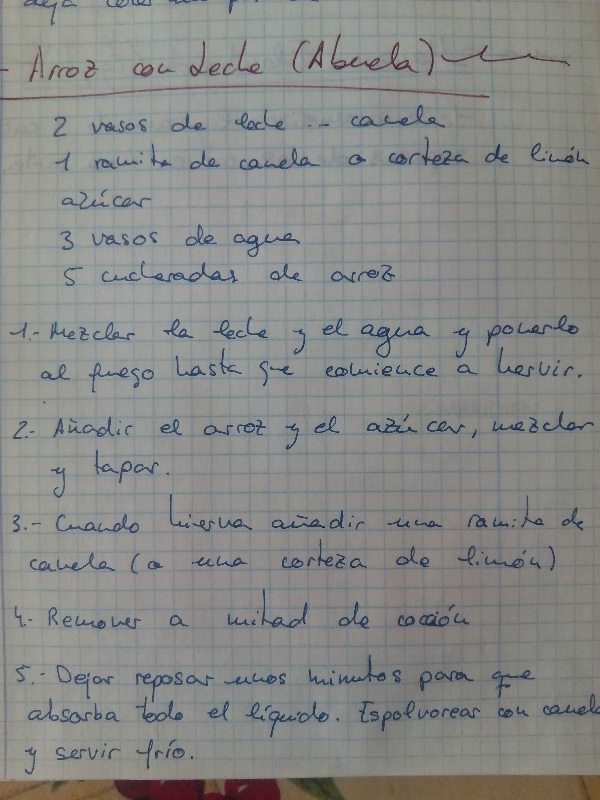 - Arroz con Leche (Abuela)
2 vasos de leche -- canela
1 ramita de canela o corteza de limón
azúcar
3 vasos de agua
5 cucharadas de arroz
1.- Mezclar la leche y el agua y ponerlo
al fuego hasta que comience a hervir.
2.- Añadir el arroz y el azúcar, mezclar
y tapar.
3.- Cuando hierva añadir una ramita de
canela (o una corteza de limón)
4.- Remover a mitad de cocción
5.- Dejar reposar unos minutos para que
absorba todo el líquido. Espolvorear con canela
y servir frío.